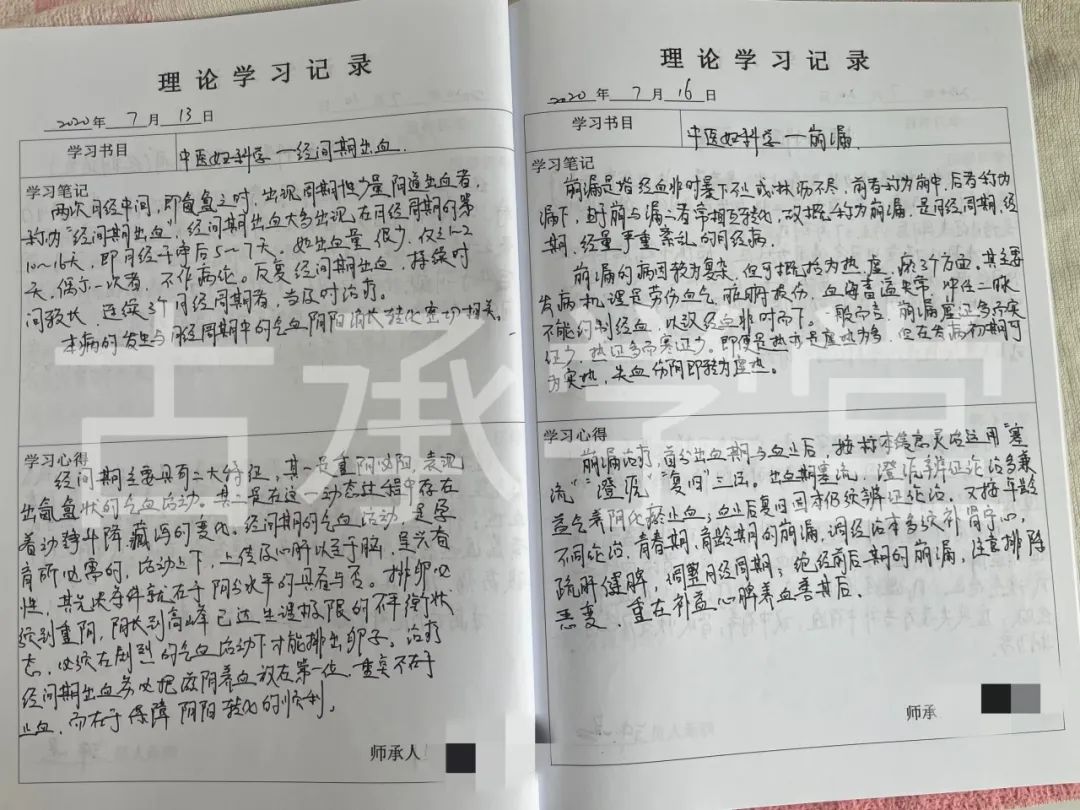 理论学习记录
2020年 7月 13日
学习书目
中医妇科学—经间期出血.
学习笔记
两次月经中间，即氤氲之时，出现周期性少量阴道出血者，
称为“经间期出血”，经间期出血大多出现在月经周期的第
10～16天，即月经干净后5～7天。如出血量很少，仅之1～2
天，偶尔一次者，不作病论。反复经间期出血，持续时
间较长，连续3个月经周期者，当及时治疗。
本病的发生与月经周期中的气血阴阳消长转化密切相关。
学习心得
经间期主要具有二大特征，其一是重阴必阳，表现
出氤氲状的气血活动。其二是在这一动态过程中存在
着动静升降藏泻的变化。经间期的气血活动，是孕
育所必需的，活动上下，上传及心肝以至于脑，是否有
性，其先决条件就在于阴分水平的具备与否。排卵必
须到重阴，阴长到高峰已达生理极限的不平衡状
态，必须在剧烈的气血活动下才能排出卵子。治疗
经间期出血务必把滋阴养血放在第一位，重点不在于
止血，而在于保障阴阳转化的顺利。
师承人
理论学习记录
2020年 7月 16日
学习书目
中医妇科学—崩漏.
学习笔记
崩漏是指经血非时暴下不止或淋沥不尽，前者称为崩中，后者称为
漏下，由于崩与漏二者常相互转化，故概称为崩漏，是月经周期、经
期、经量严重紊乱的月经病。
崩漏的病因较为复杂，但可概括为热、虚、瘀3个方面。其主要
发病机理是劳伤血气，脏腑损伤，血海蓄溢失常，冲任二脉
不能约制经血，以致经血非时而下。一般而言，崩漏虚证多而实
证少，热证多而寒证少。即便是热亦是虚热为多，但在发病初期可
为实热，失血伤阴即转为虚热。
学习心得
崩漏治疗，首分出血期与血止后，按标本缓急灵活运用“塞
流”“澄源”“复旧”三法。出血期塞流、澄流辨证论治多兼
益气养阴化瘀止血；血止后复旧固本仍须辨证论治，又按年龄
不同论治，青春期、育龄期的崩漏，调经治本多须补肾宁心，
疏肝健脾，调整月经周期；绝经前后期的崩漏，注意排除
恶变，重在补益心脾养血善其后.
师承
古承学堂